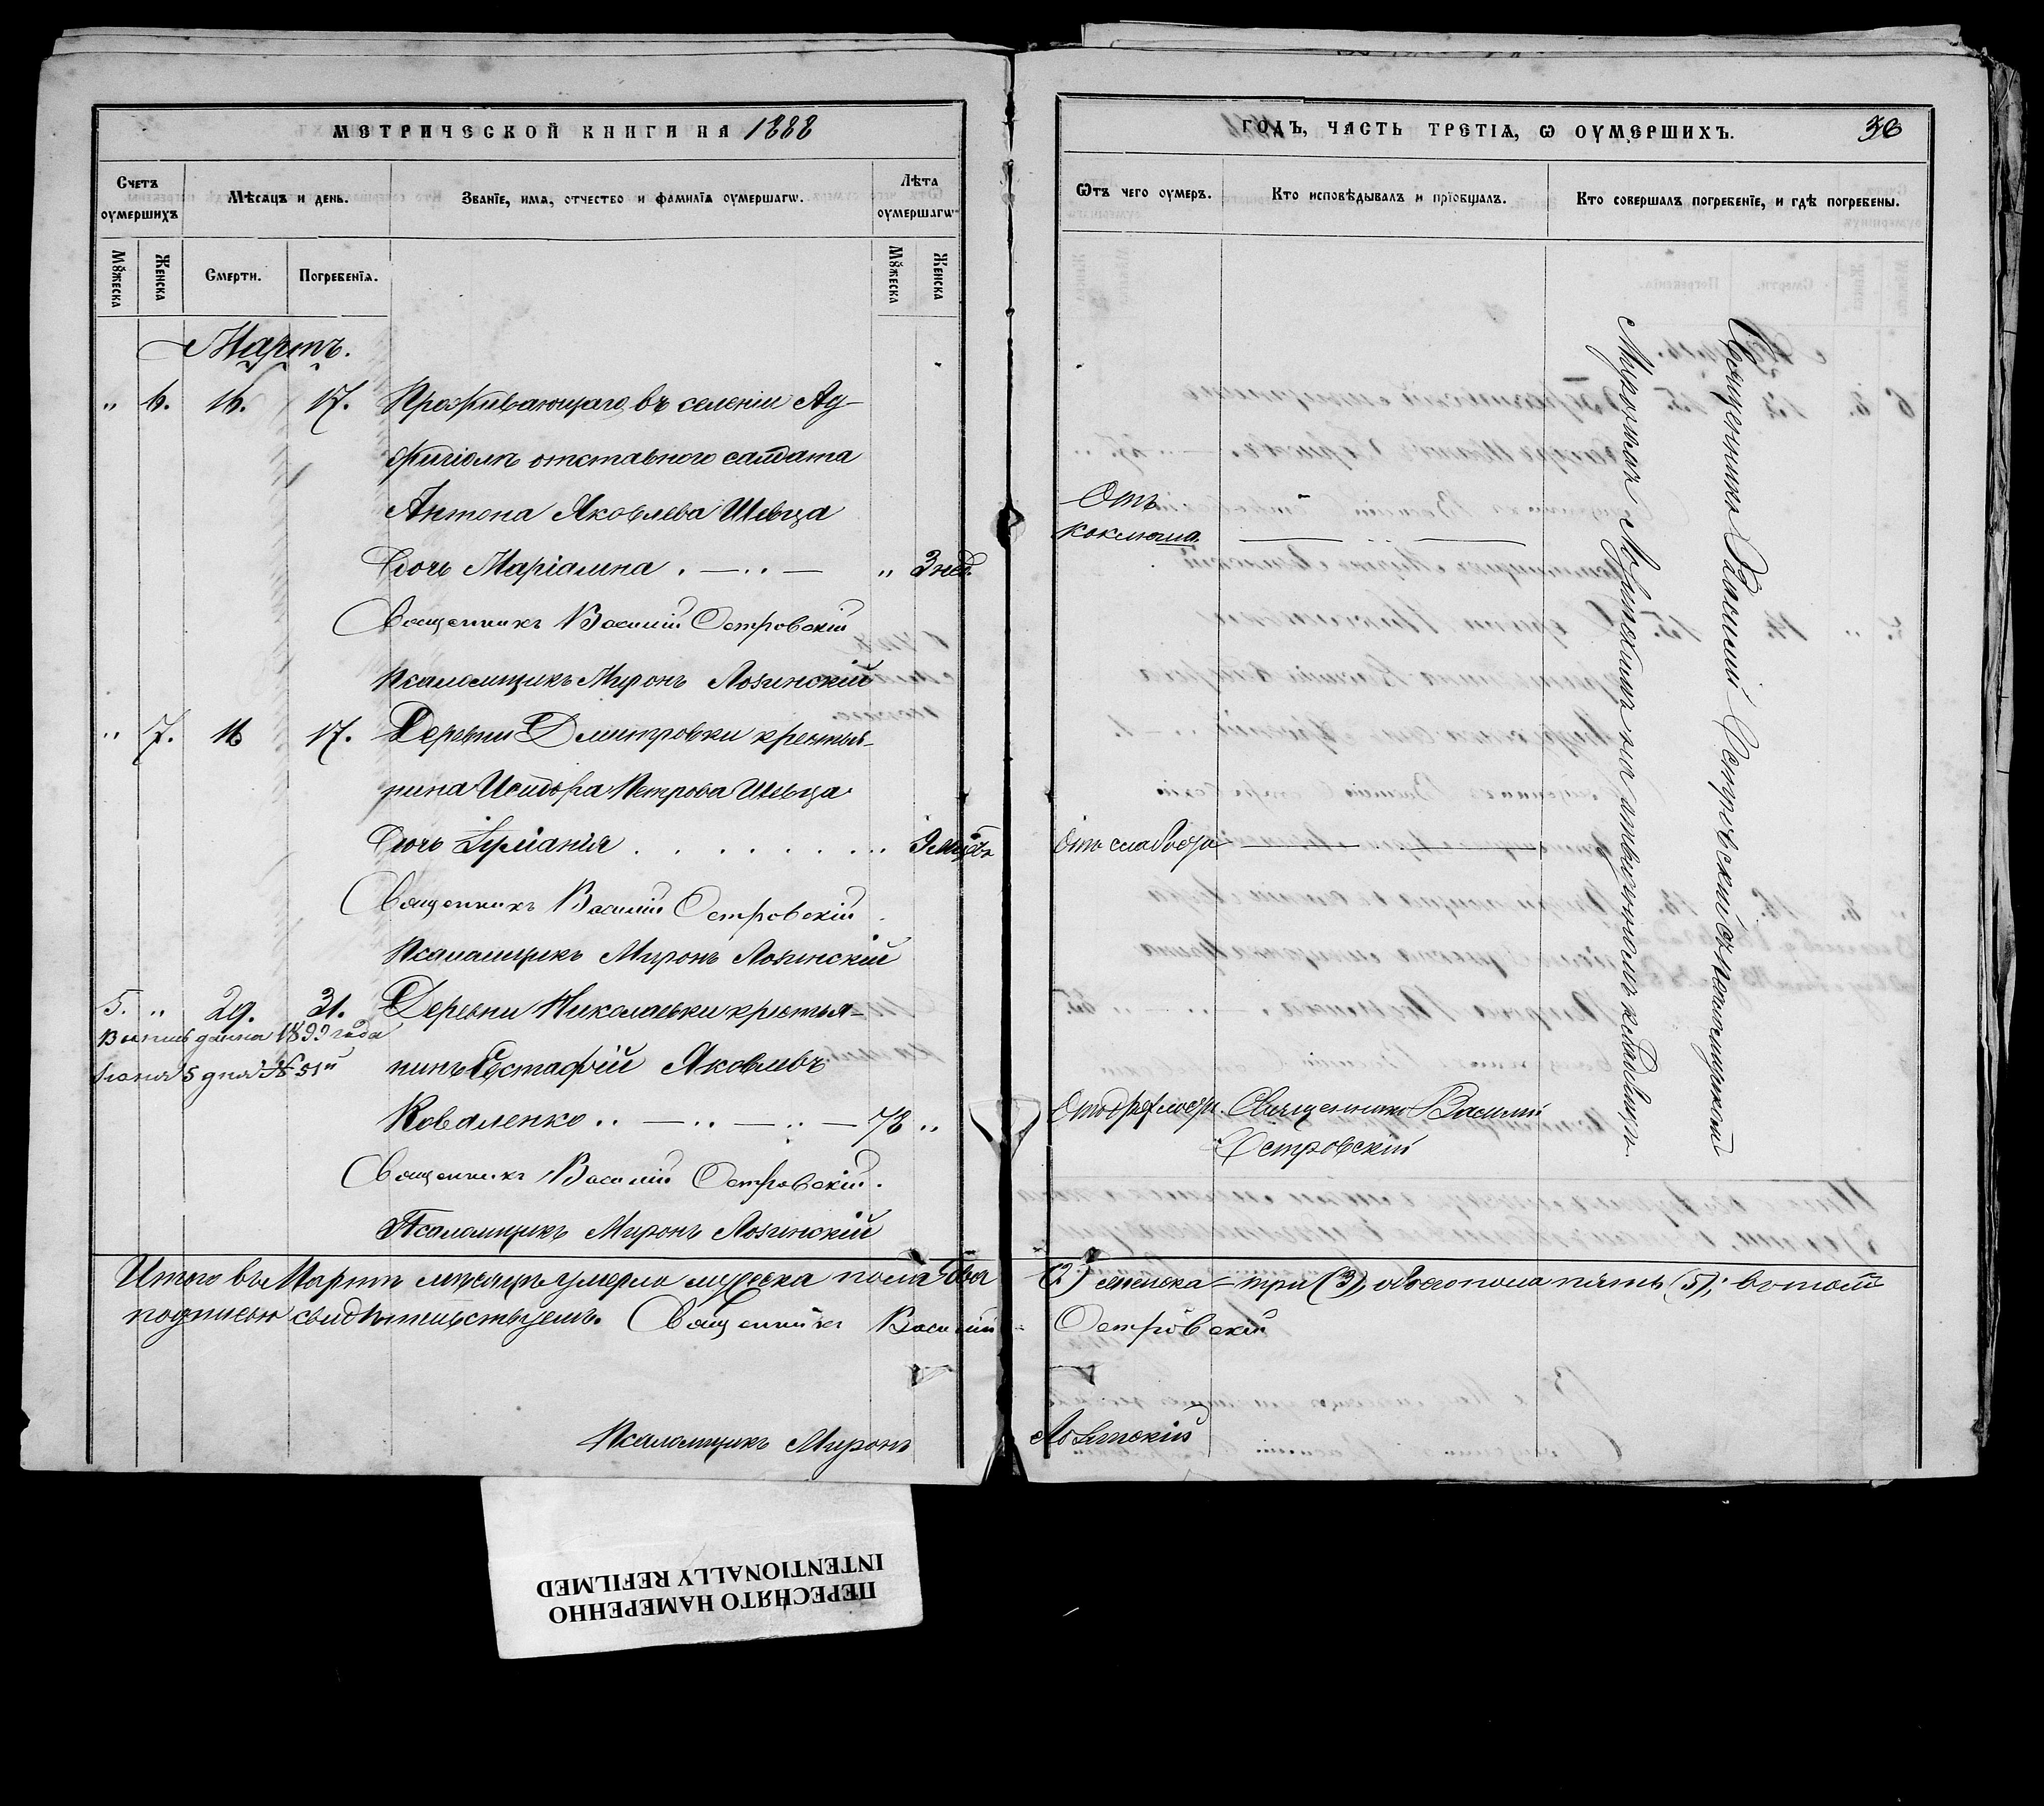 МЕТРИЧЕСКОЙ КНИГИ НА 1888
Счетъ оумершихъ
Мѣсяцъ и день.
Званіе, имя, отчество и фамилія оумершагѡ.
Лѣта оумершагѡ
Мꙋжеска
Женска
Смерти.
Погребенія.
Мꙋжеска
Женска
Мартъ.
" 6. 16. 17. Проживающаго въ селеніи Ад-
отставного салдата
Антона Яковлева Шевца
дочь Маріамна . — .. — " 3 нед.
Священникъ Василій Островскій
Псаломщикъ Миронъ Лозинскій
" 7. 16 17. Деревни Дмитровки крестья-
нина Исидора Петрова Шевца
дочь
Священникъ Василій Островскій
Псаломщикъ Миронъ Лозинскій
5. " 29. 31. Деревни Николаевки крестья-
Выпись дана 1899 года
Іюня 5 дня № 51й
нинъ Евстафій Яковлевъ
Коваленко .. — .. — .. — 78 "
Священникъ Василій Островскій.
Псаломщикъ Миронъ Лозинскій
Итого въ Мартѣ мѣсяцѣ умерло мужеска пола два
подписью свидѣтельствуемъ. Священникъ Василій
Псаломщикъ Миронъ
ГОДЪ, ЧАСТЬ ТРЕТІЯ, Ѡ ОУМЕРШИХЪ.
Ѿтъ чего оумеръ.
Кто исповѣдывалъ и пріобщалъ.
Кто совершалъ погребеніе, и гдѣ погребены.
Отъ
коклюша.
Отъ слабости
Отъ дряхлости. Священникъ Василій
Островскій
Священникъ Василій Островскій съ псаломщикомъ
Мирономъ Лозинскимъ на кладбищѣ.
(2) женска – три (3), обоего пола пять (5); въ томъ
Островскій
Лозинскій
ПЕРЕСНЯТО НАМЕРЕННО
INTENTIONALLY REFILMED